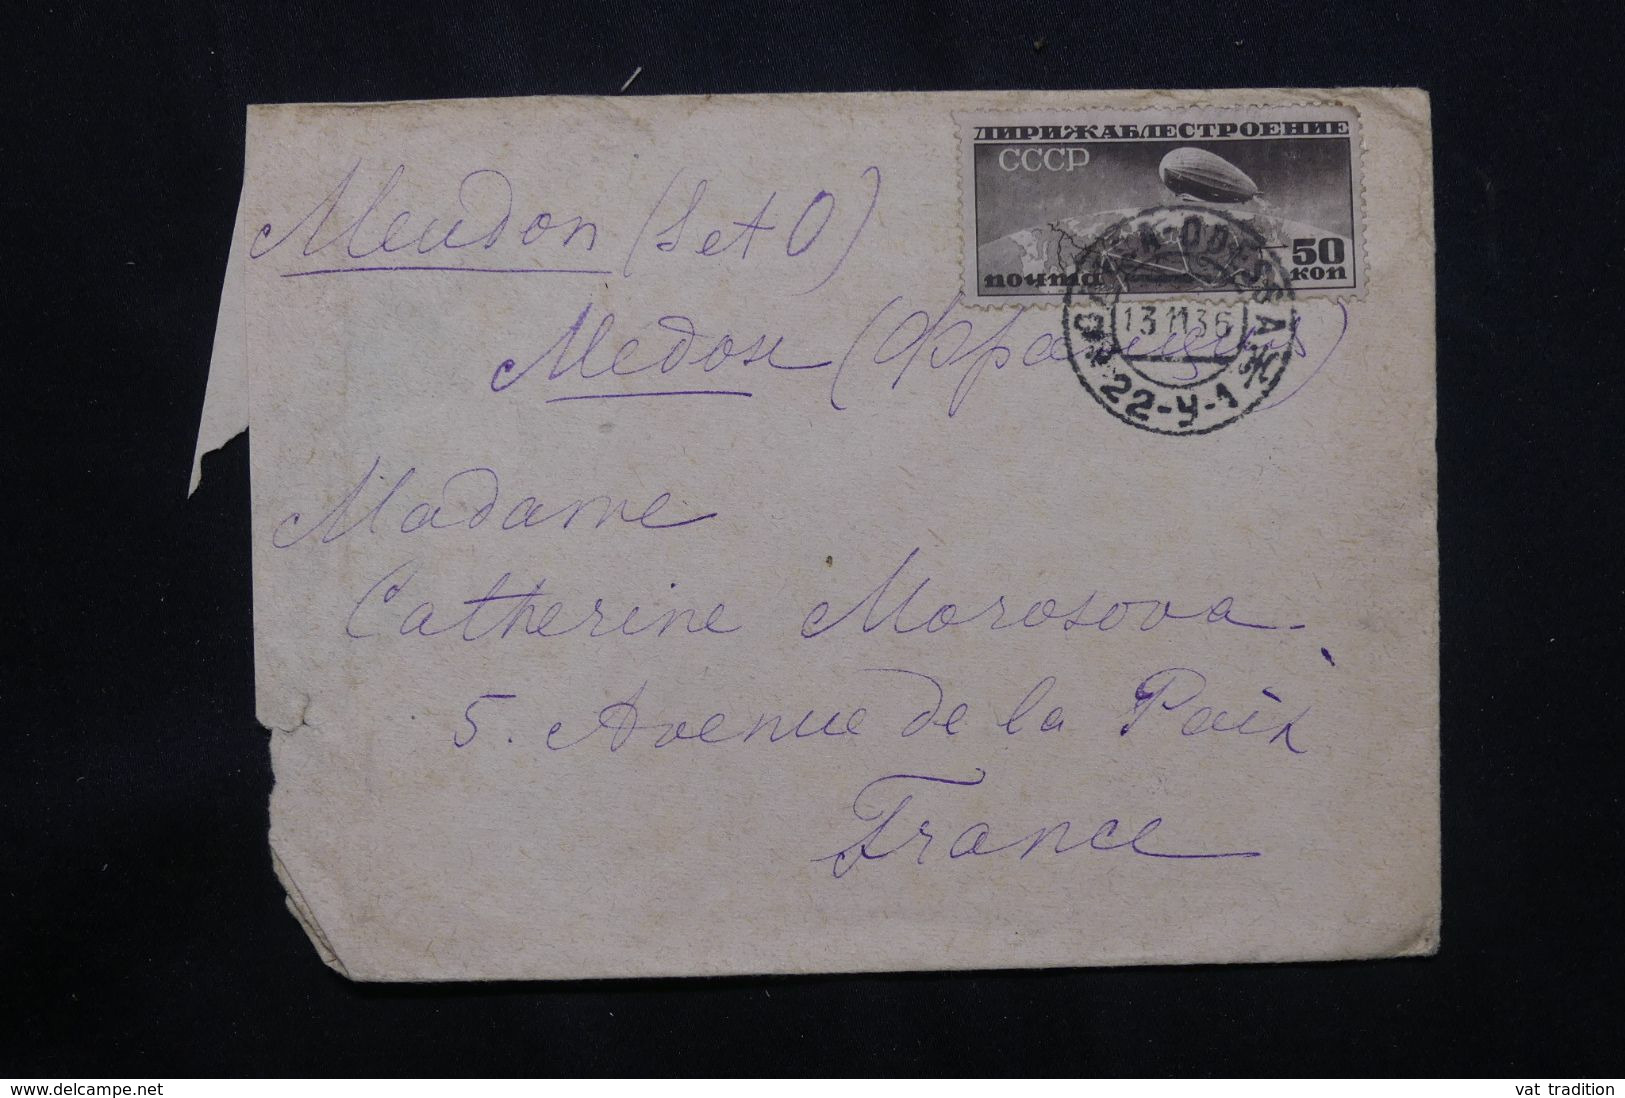 ДИРИЖАБЛЕСТРОЕНИЕ
СССР
50
почта коп
ОДЕССА-ODESSA
13 11 36
22-У-1
Meudon (S et O)
Медон (Франция)
Madame
Catherine Morosova
5. Avenue de la Paix
France
www.delcampe.net
vat tradition